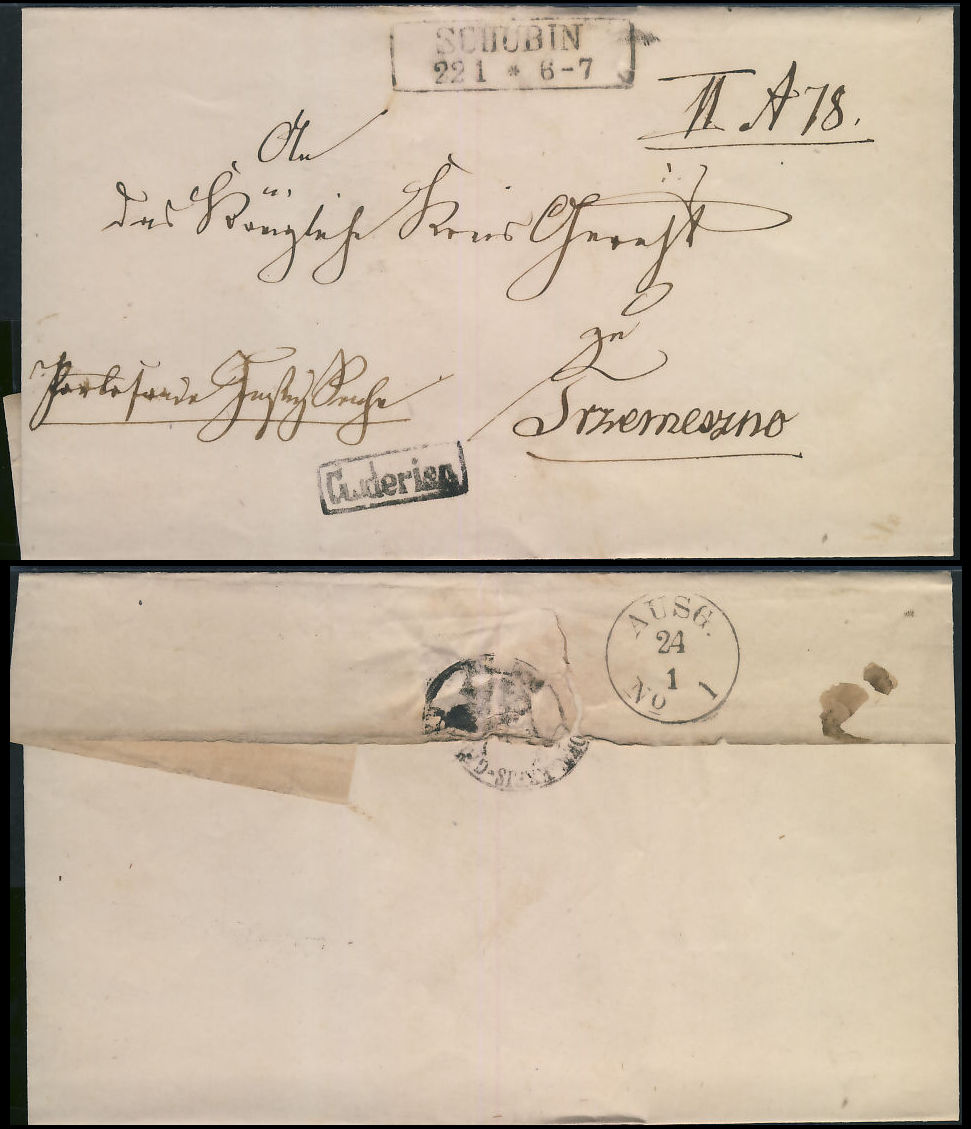 SCHUBIN
22 1 * 6-7
II A 78.
An
das Königliche Kreis Gericht
zu
Trzemeszno
Guderian
AUSG.
24
1
No 1